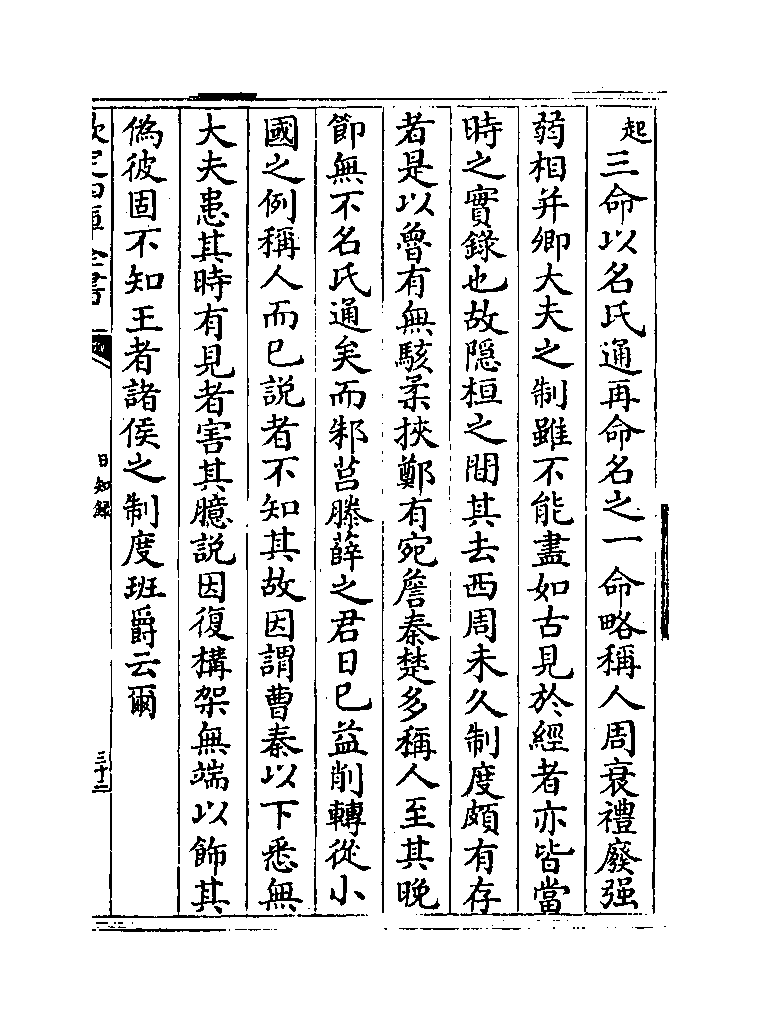 起三命以名氏通再命名之一命略稱人周衰禮廢强
弱相并卿大夫之制雖不能盡如古見於經者亦皆當
時之實錄也故隱桓之間其去西周未久制度頗有存
者是以魯有無駭柔挾鄭有宛詹秦楚多稱人至其晚
節無不名氏通矣而邾莒滕薛之君日已益削轉從小
國之例稱人而已説者不知其故因謂曹秦以下悉無
大夫患其時有見者害其臆説因復構架無端以飾其
偽彼固不知王者諸侯之制度班爵云爾
欽定四庫全書
日知録
三十二